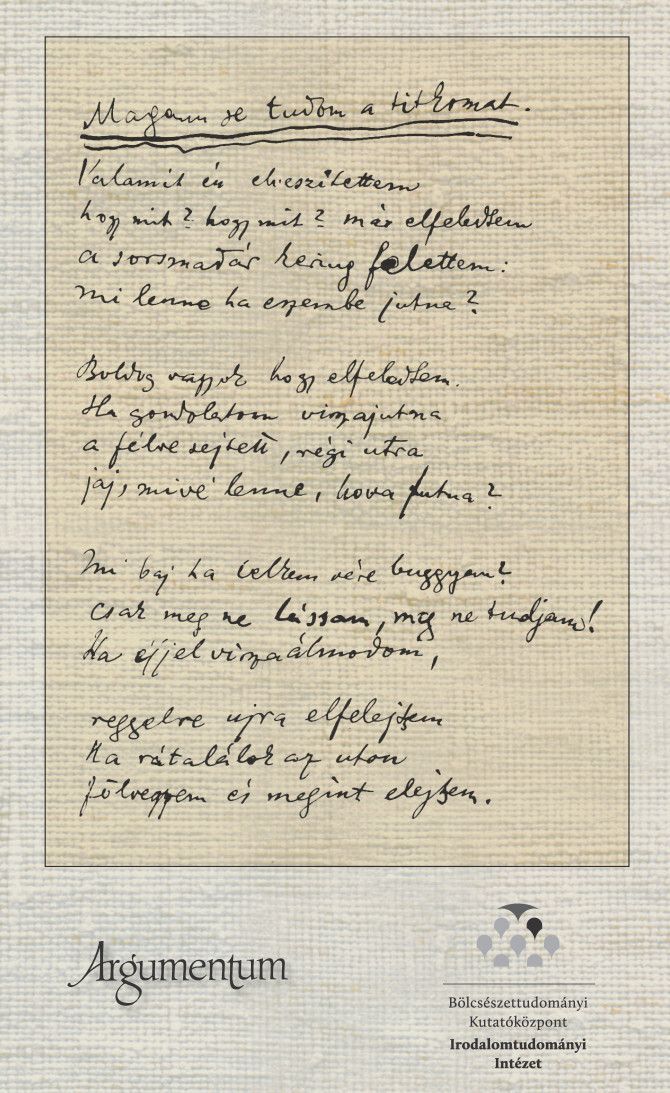 Magam se tudom a titkomat.
Valamit én elveszitettem
hogy mit? hogy mit? már elfeledtem
a sorsmadár kering felettem:
mi lenne ha eszembe jutna?
Boldog vagyok hogy elfeledtem.
Ha gondolatom visszajutna
a félve sejtett, régi útra
jaj, mivé lenne, hova futna?
Mi baj ha lelkem vére buggyan?
csak meg ne lássam, meg ne tudjam!
Ha éjjel visszaálmodom,
reggelre ujra elfelejtem
Ha rátalálok az uton
fölveszem és megint elejtem.
Argumentum
Bölcsészettudományi
Kutatóközpont
Irodalomtudományi
Intézet